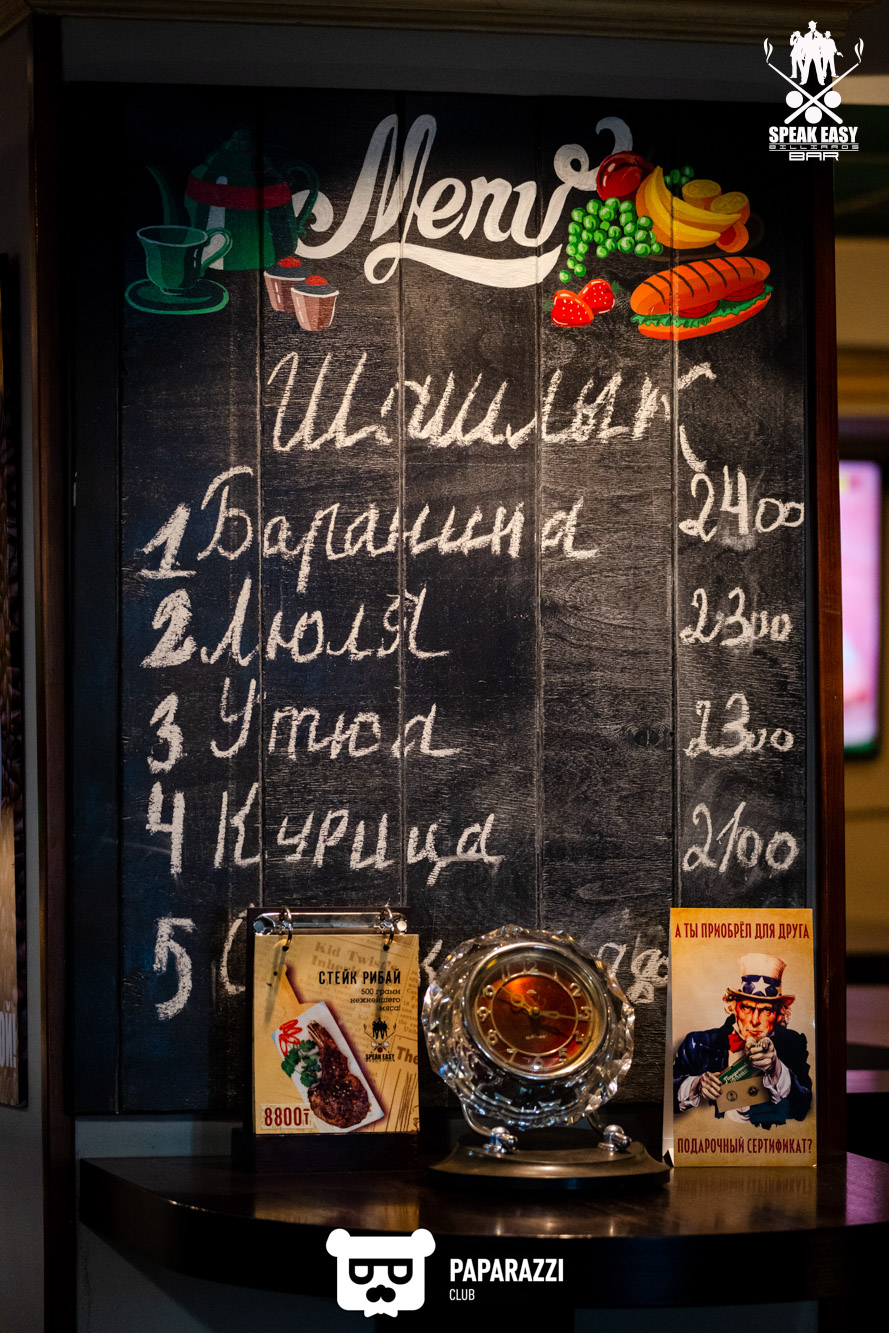 SPEAK EASY
BILLIARDS
BAR
Menu
Шашлык
1 Баранина 2400
2 Люля 2300
3 Утюа 2300
4 Курица 2100
5
А ТЫ ПРИОБРЁЛ ДЛЯ ДРУГА
ПОДАРОЧНЫЙ СЕРТИФИКАТ?
Kid Twist
СТЕЙК РИБАЙ
500 грамм
нежнейшего
мяса!
SPEAK EASY
The
8800₸
PAPARAZZI
CLUB